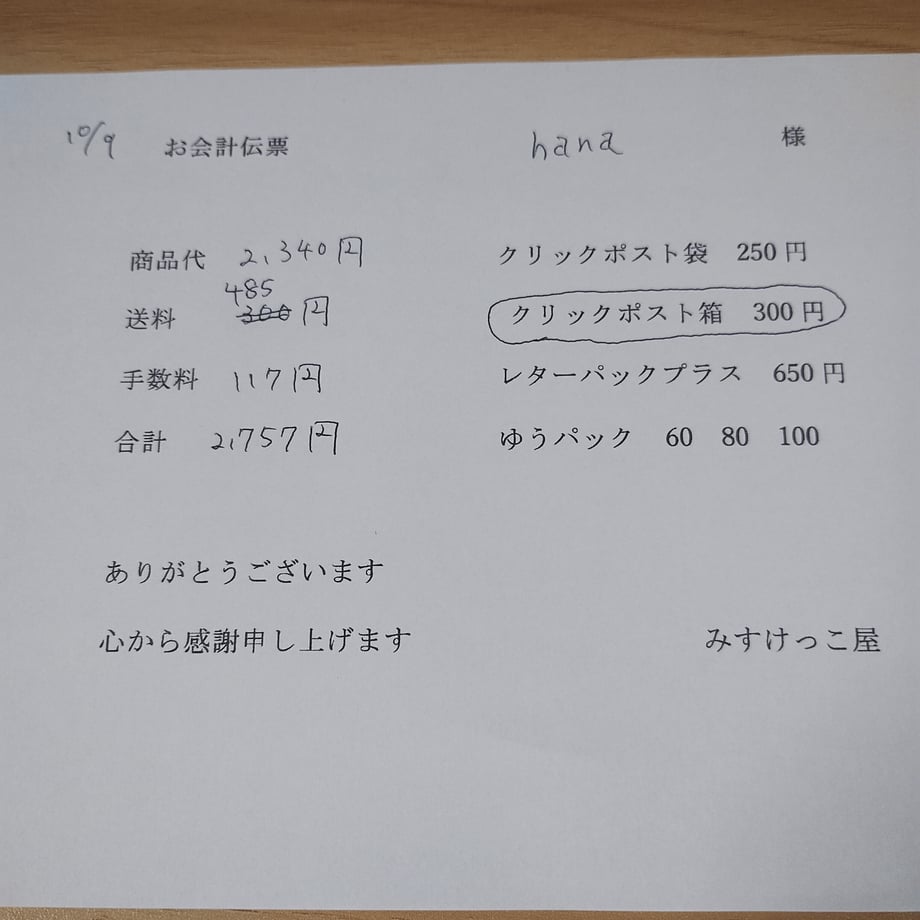 10/9 お会計伝票 hana 様
商品代 2,340円 クリックポスト袋 250円
485
送料 300円 クリックポスト箱 300円
手数料 117円 レターパックプラス 650円
合計 2,757円 ゆうパック 60 80 100
ありがとうございます
心から感謝申し上げます みすけっこ屋